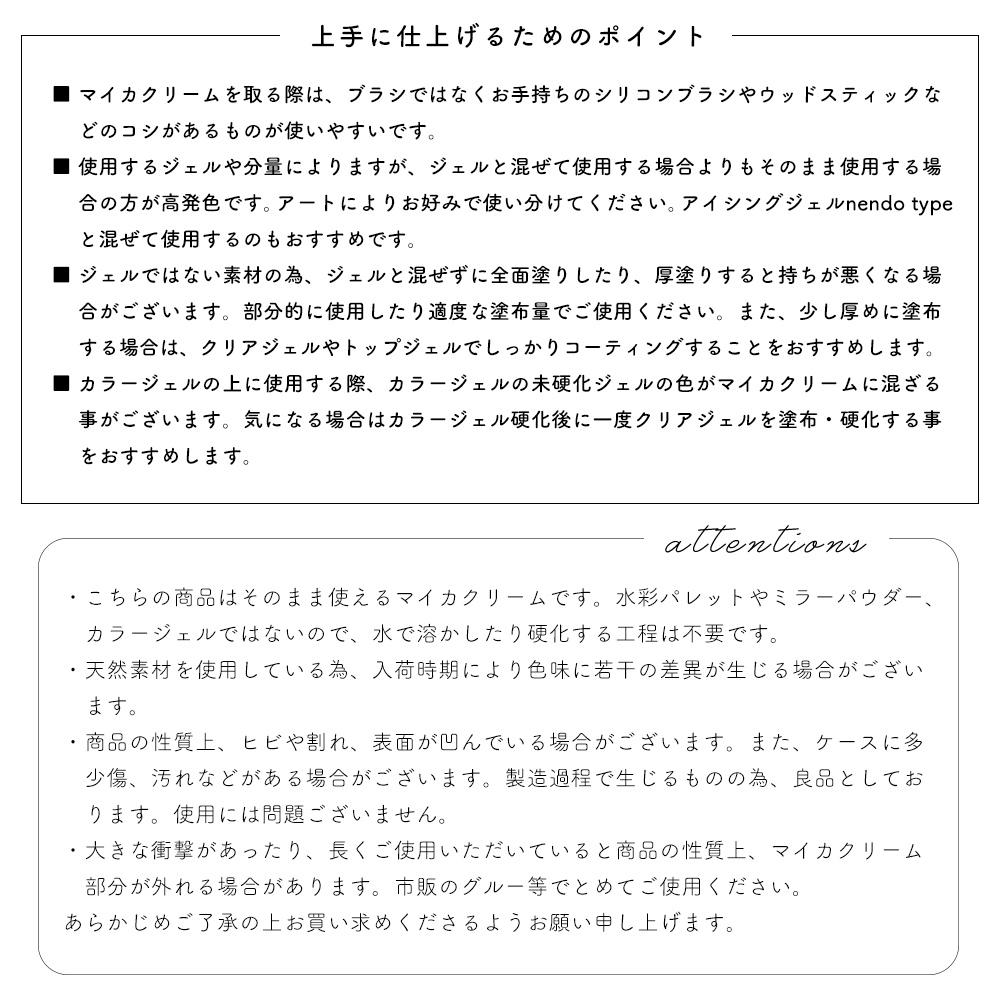 上手に仕上げるためのポイント
■ マイカクリームを取る際は、ブラシではなくお手持ちのシリコンブラシやウッドスティックな
どのコシがあるものが使いやすいです。
■ 使用するジェルや分量によりますが、ジェルと混ぜて使用する場合よりもそのまま使用する場
合の方が高発色です。アートによりお好みで使い分けてください。アイシングジェルnendo type
と混ぜて使用するのもおすすめです。
■ ジェルではない素材の為、ジェルと混ぜずに全面塗りしたり、厚塗りすると持ちが悪くなる場
合がございます。部分的に使用したり適度な塗布量でご使用ください。また、少し厚めに塗布
する場合は、クリアジェルやトップジェルでしっかりコーティングすることをおすすめします。
■ カラージェルの上に使用する際、カラージェルの未硬化ジェルの色がマイカクリームに混ざる
事がございます。気になる場合はカラージェル硬化後に一度クリアジェルを塗布・硬化する事
をおすすめします。
attentions
・こちらの商品はそのまま使えるマイカクリームです。水彩パレットやミラーパウダー、
カラージェルではないので、水で溶かしたり硬化する工程は不要です。
・天然素材を使用している為、入荷時期により色味に若干の差異が生じる場合がござい
ます。
・商品の性質上、ヒビや割れ、表面が凹んでいる場合がございます。また、ケースに多
少傷、汚れなどがある場合がございます。製造過程で生じるものの為、良品としてお
ります。使用には問題ございません。
・大きな衝撃があったり、長くご使用いただいていると商品の性質上、マイカクリーム
部分が外れる場合があります。市販のグルー等でとめてご使用ください。
あらかじめご了承の上お買い求めくださるようお願い申し上げます。